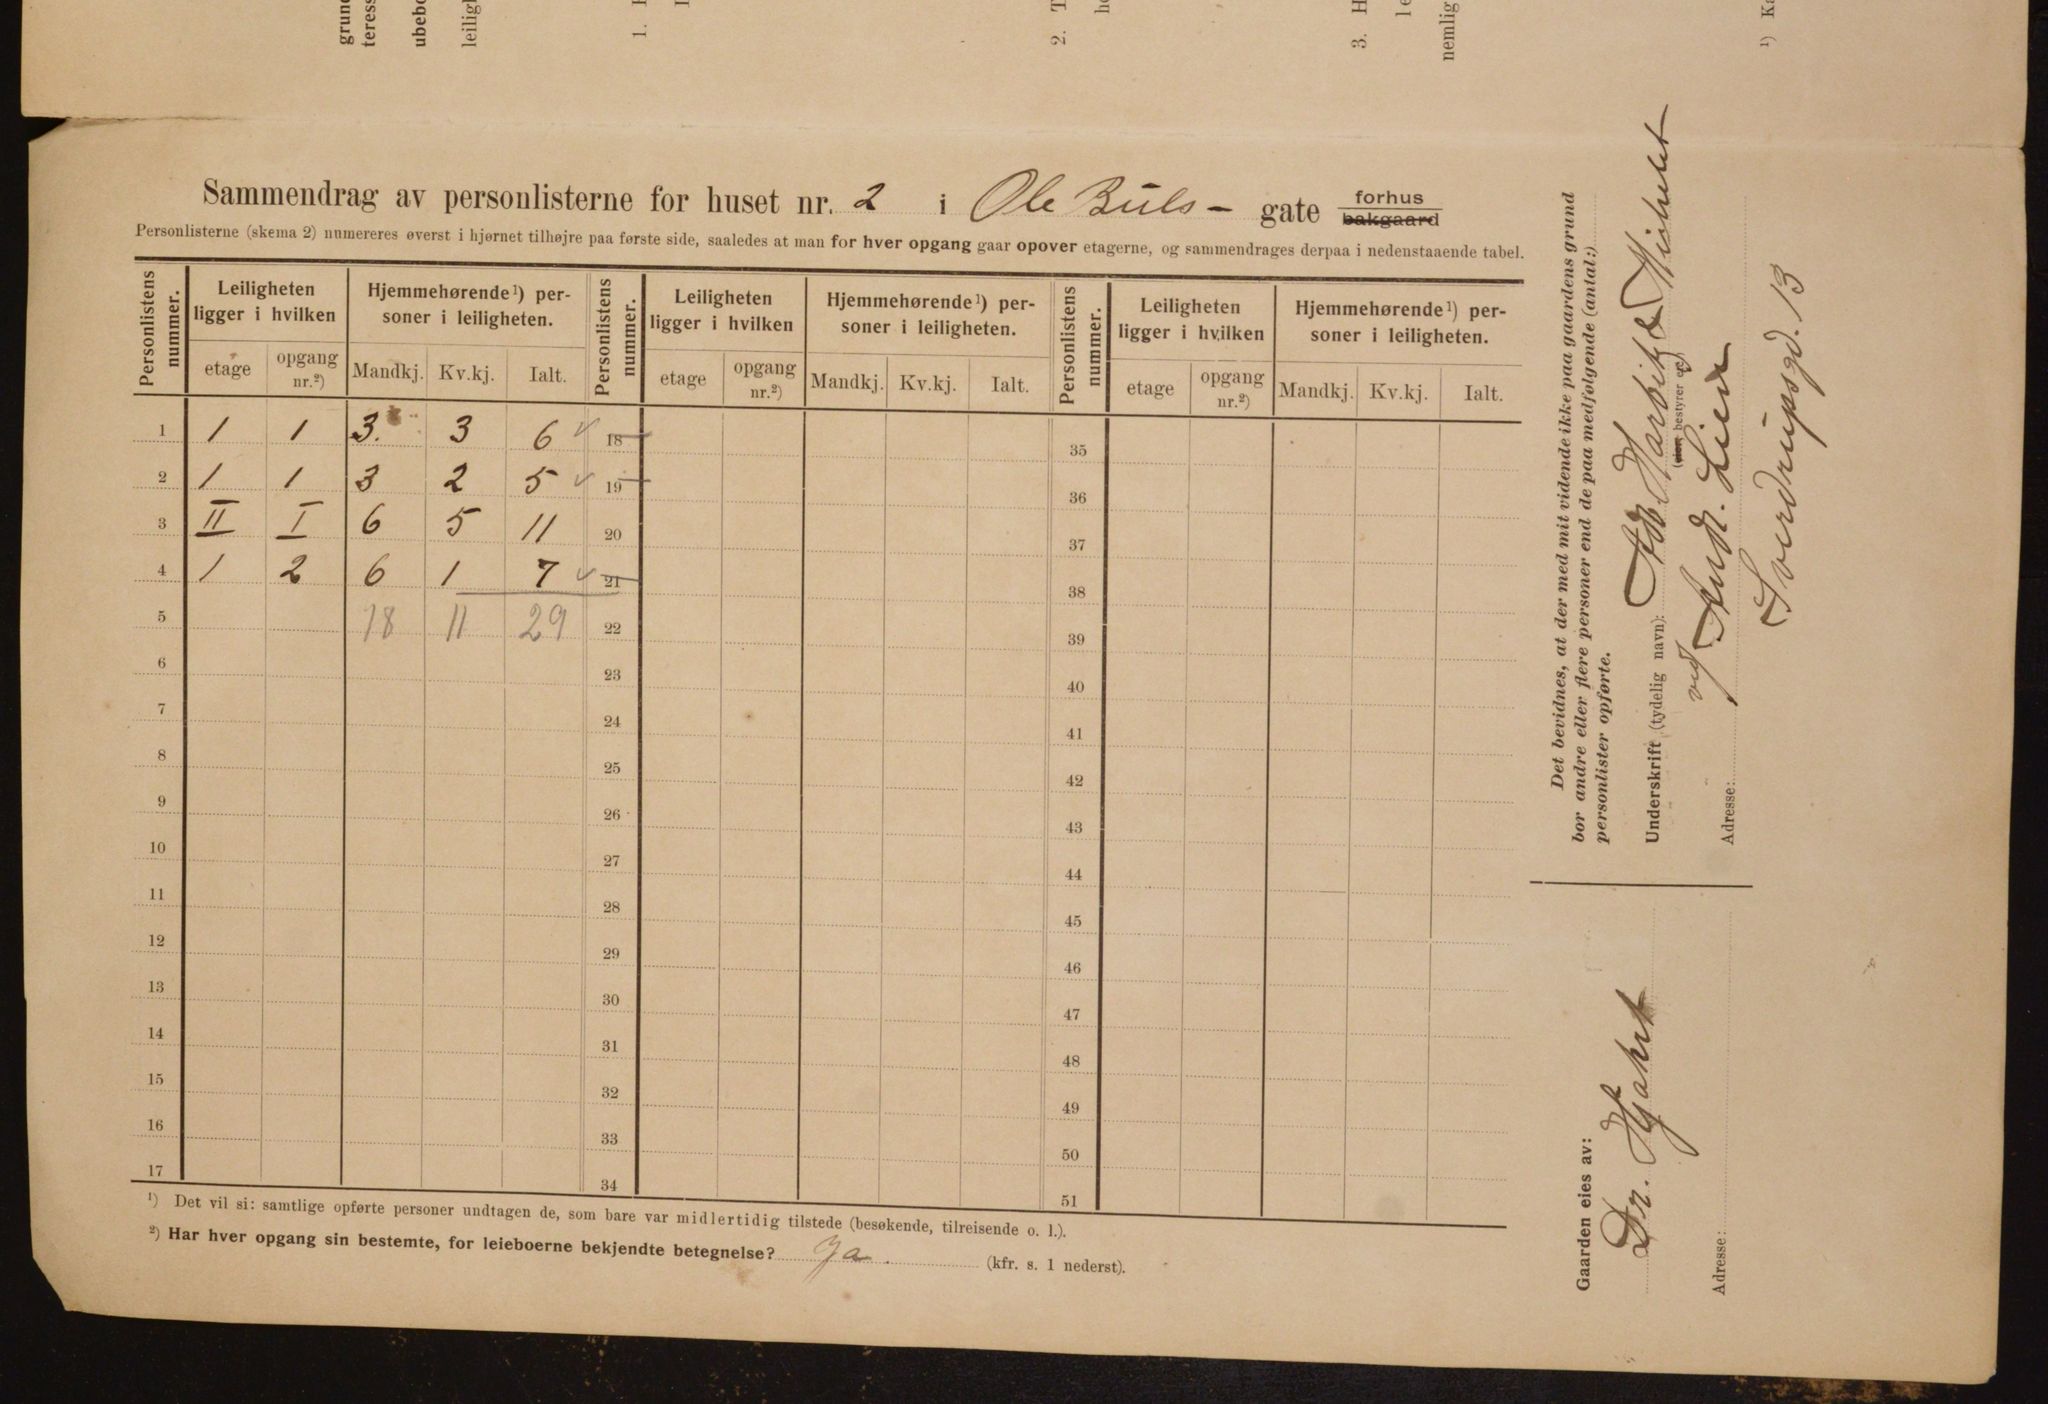 grund
teress
ubebo
leiligh
1.
2. T
h
3. H
le
nemlig
¹) Ka
Sammendrag av personlisterne for huset nr. 2 i Ole Buls- gate forhus bakgaard
Personlisterne (skema 2) numereres øverst i hjørnet tilhøjre paa første side, saaledes at man for hver opgang gaar opover etagerne, og sammendrages derpaa i nedenstaaende tabel.
Personlistens nummer. Leiligheten ligger i hvilken Hjemmehørende¹) personer i leiligheten. Personlistens nummer. Leiligheten ligger i hvilken Hjemmehørende¹) personer i leiligheten. Personlistens nummer. Leiligheten ligger i hvilken Hjemmehørende¹) personer i leiligheten.
etage opgang nr.²) Mandkj. Kv.kj. Ialt. etage opgang nr.²) Mandkj. Kv.kj. Ialt. etage opgang nr.²) Mandkj. Kv.kj. Ialt.
1 1 1 3. 3 6 ✓ 18 35
2 1 1 3 2 5 ✓ 19 36
3 II I 6 5 11 20 37
4 1 2 6 1 7 ✓ 21 38
5 18 11 29 22 39
6 23 40
7 24 41
8 25 42
9 26 43
10 27 44
11 28 45
12 29 46
13 30 47
14 31 48
15 32 49
16 33 50
17 34 51
¹) Det vil si: samtlige opførte personer undtagen de, som bare var midlertidig tilstede (besøkende, tilreisende o. l.).
²) Har hver opgang sin bestemte, for leieboerne bekjendte betegnelse? Ja. (kfr. s. 1 nederst).
Det bevidnes, at der med mit vidende ikke paa gaardens grund
bor andre eller flere personer end de paa medfølgende (antal:)
personlister opførte.
Underskrift (tydelig navn): Harbitz & Michelet
(eier, bestyrer e.)
ved Andr. Lien
Adresse: Sverdrupsgd. 13
Gaarden eies av:
Dr.
Adresse: